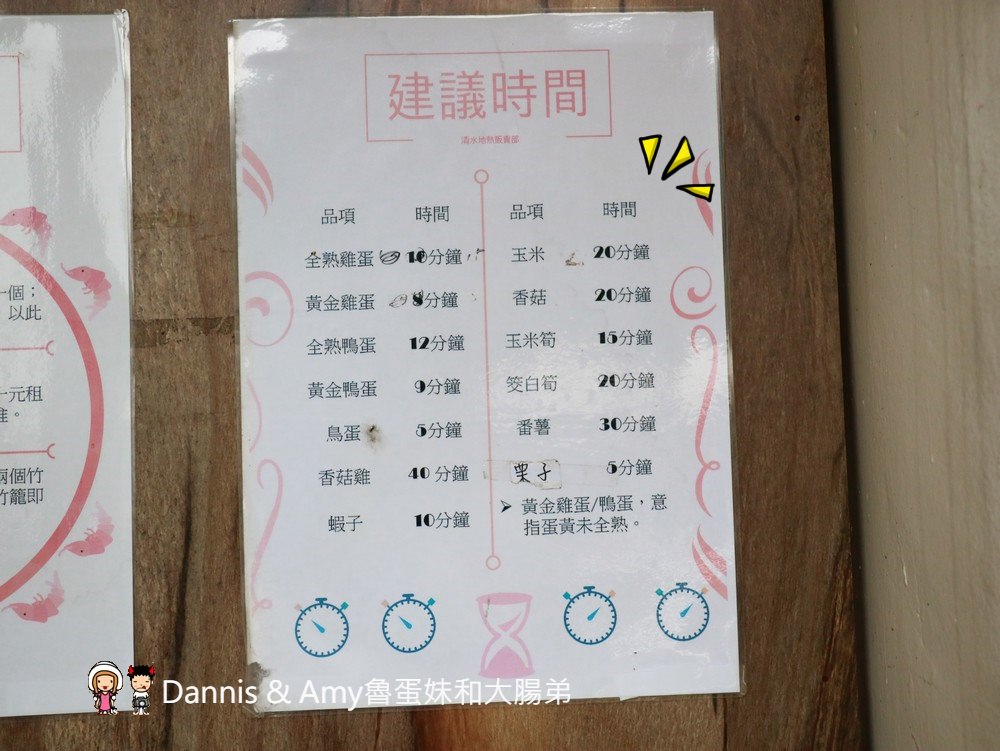 建議時間
清水地熱販賣部
品項 時間
全熟雞蛋 10分鐘
黃金雞蛋 8分鐘
全熟鴨蛋 12分鐘
黃金鴨蛋 9分鐘
鳥蛋 5分鐘
香菇雞 40分鐘
蝦子 10分鐘
品項 時間
玉米 20分鐘
香菇 20分鐘
玉米筍 15分鐘
筊白筍 20分鐘
番薯 30分鐘
栗子 5分鐘
➢ 黃金雞蛋/鴨蛋，意
指蛋黃未全熟。
一個；
以此
一元租
兩個竹
竹籠即
Dannis & Amy魯蛋妹和大腸弟